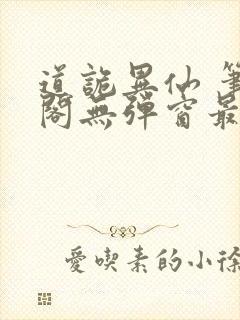 道詭異仙 筆
閣無彈窗最
愛喫素的小徐